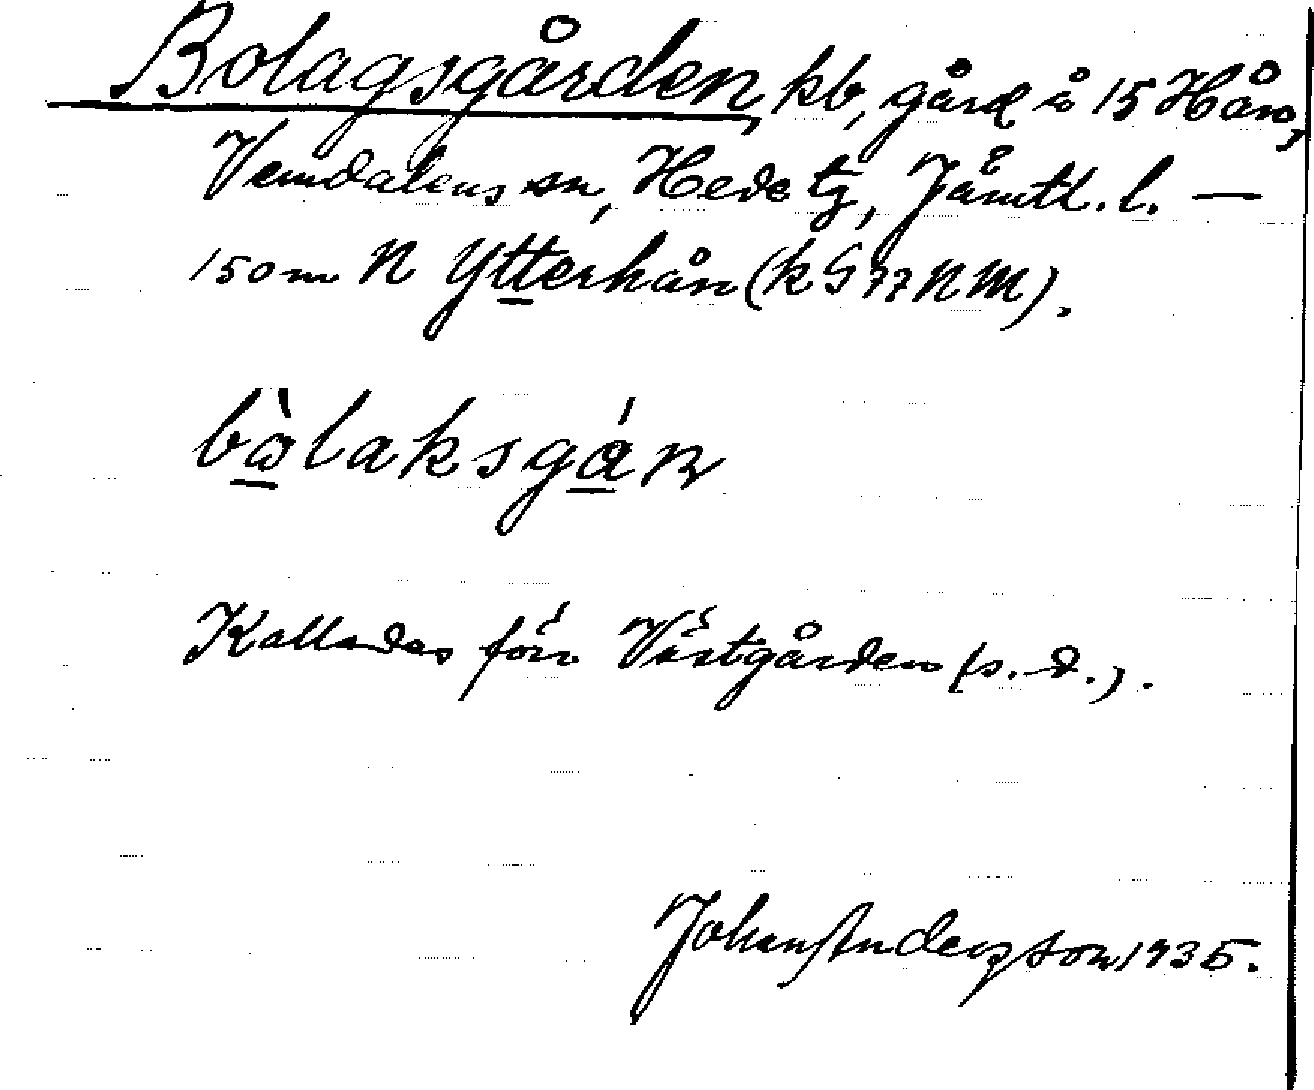 Bolagsgården, kb, gård å 15 Hån,
Vemdalens sn, Hede tg, Jämtl. l. —
150 m N Ytterhån (k G 77 N M).
bòlaksgán
Kallades förr Västgården (s. d.).
Johan Anderzson 1935.